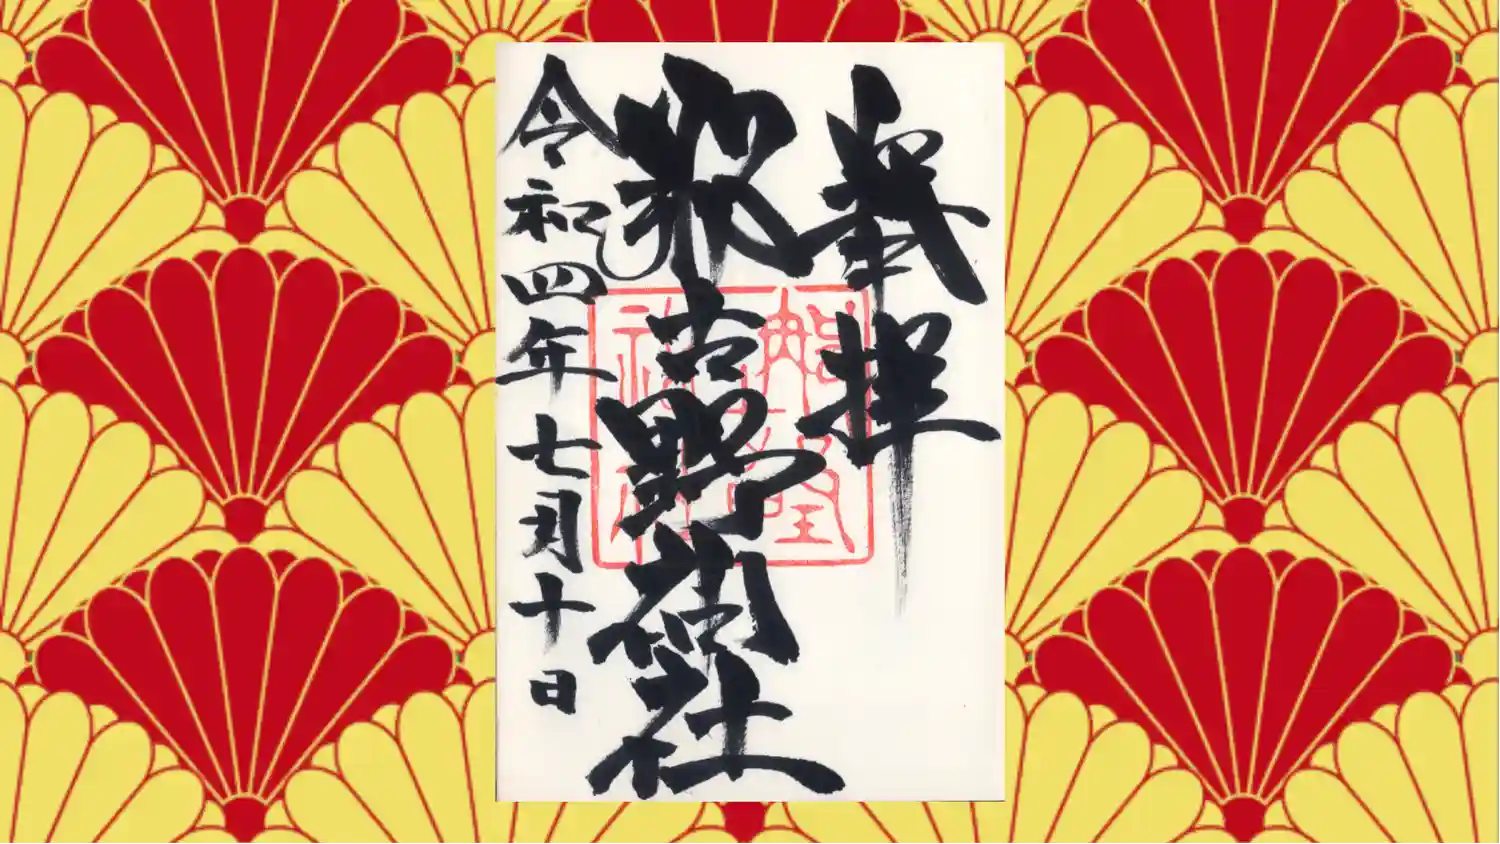 奉拝
古野神社
令和四年七月十日